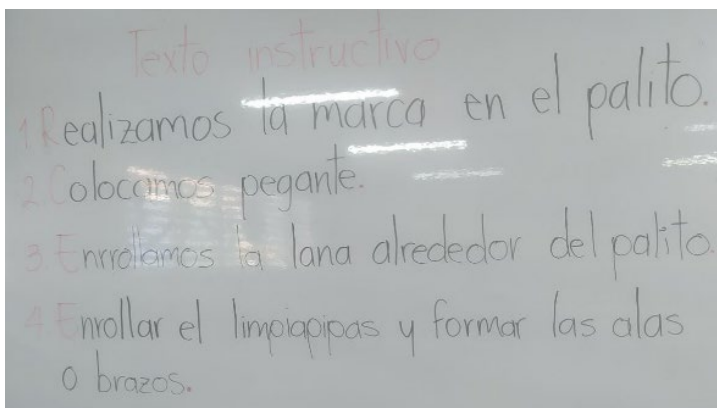 Texto instructivo
1. Realizamos la marca en el palito.
2. Colocamos pegante.
3. Enrrollamos la lana alrededor del palito.
4. Enrollar el limpiapipas y formar las alas
o brazos.